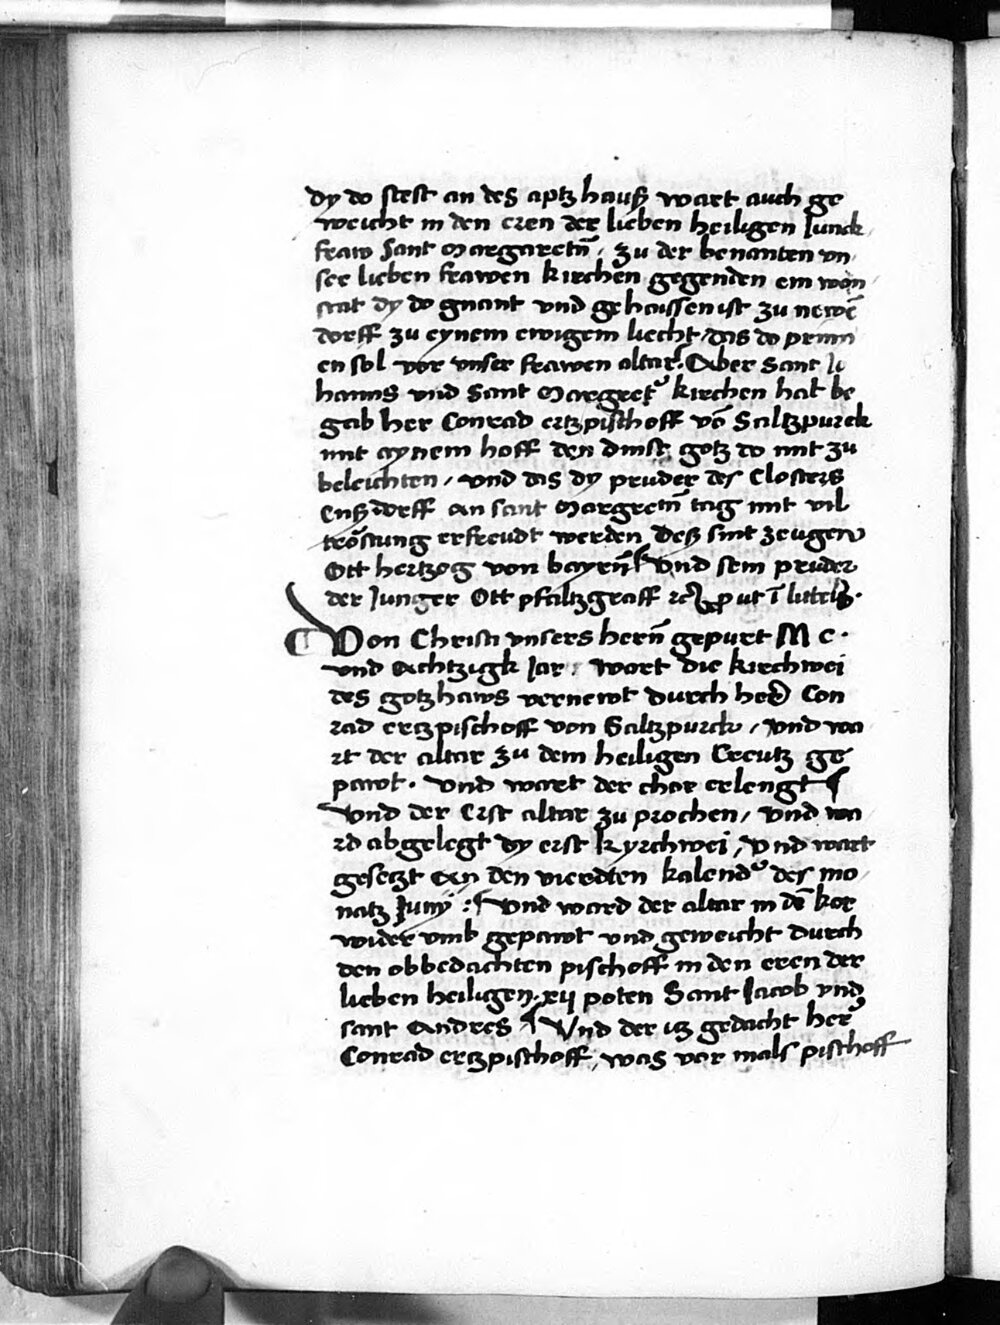 dy do stest an des aptz hauß wart auch ge
weicht in den eren der lieben heiligen Junck
fraw Sant Margaretn̄ / zu der benanten vn
ser lieben frawen kirchen gegenden ein won
stat dy do gnant vnd gehaissen ist zu newē
dorff zu eynem ewigem liecht / das do prinn
en sol vor vnser frawen altar. Aber Sant Jo
hanns vnd Sant Margret kirchen hat be
gab her Conrad ertzpischoff vō Saltzpurck
mit aynem hoff den dinst gotz do mit zu
beleichten / vnd das dy pruder des Closters
Enßdorff an sant Margretn̄ tag mit vil
tröstung erfreudt werden Deß sint zeugen
Ott hertzog von bayrn̄ Vnd sein pruder
der Junger Ott pfaltzgraff rc ut ī
Von Christi vnsers hern̄ gepurt M c.
vnd Achtzigk Jar wort die kirchwei
des gotzhaws vernewt durch her Con
rad ertzpischoff von Saltzpurck / vnd wa
rt der altar zu dem heiligen Creutz ge
pawt. vnd wart der chor erlengt
Vnd der Erst altar zu prochen / vnd wa
rd abgelegt dy erst kyrchwei / vnd wart
gesetzt An den vierdten kalend des mo
natz Junij : Vnd ward der altar in dē kor
wider vmb gepawt vnd geweicht durch
den obbedachten pischoff in den eren der
lieben heiligen. xij poten Sant Jacob vnd
sant Andres / Vnd der itz gedacht her
Conrad ertzpischoff, was vor mals pischoff